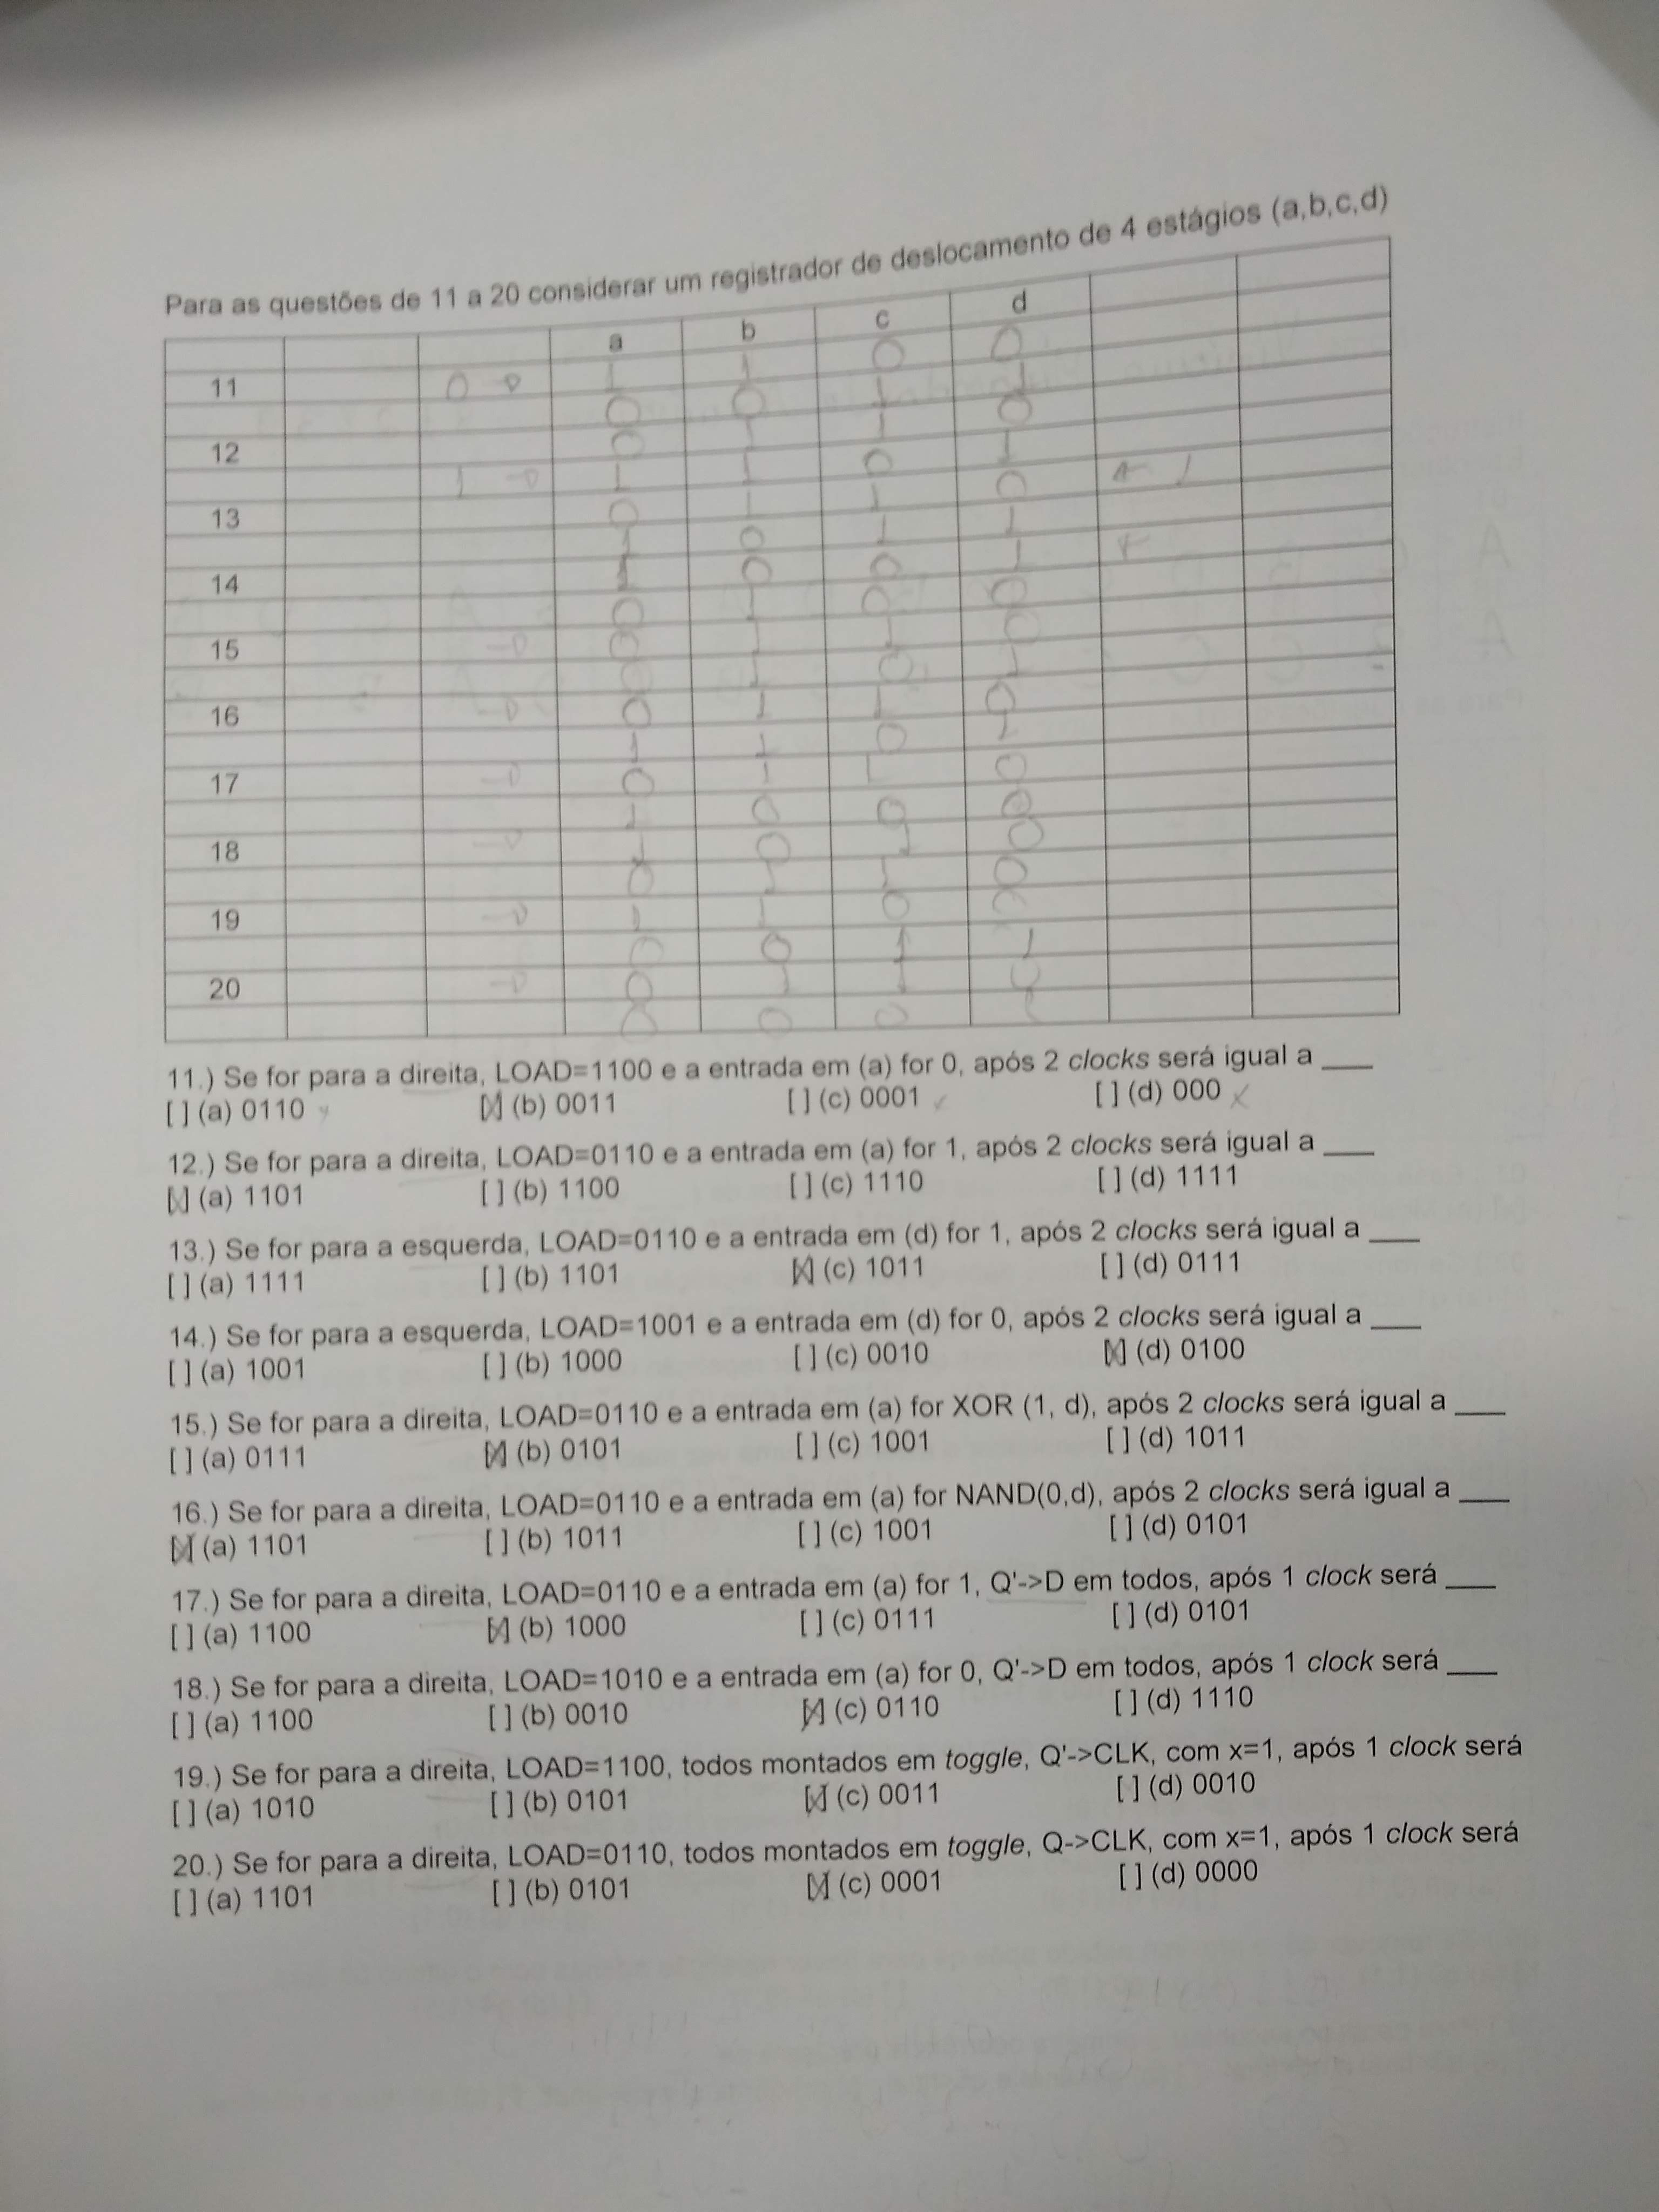 Para as questões de 11 a 20 considerar um registrador de deslocamento de 4 estágios (a,b,c,d)
a b c d
1 1 0 0
11 0
0 0 1 1
12 0 1 1 0
1 1 1 0 1 1
13 0 1 1 0
1 0 1 1
14 1 0 0 1
0 1 0 0
15 0 1 1 0
0 1 0 1
16 0 1 1 0
1 1 0 1
17 0 1 1 0
1 0 0 0
18 1 0 1 0
0 1 1 0
19 1 1 0 0
0 0 1 1
20 0 1 1 0
0 0 0
11.) Se for para a direita, LOAD=1100 e a entrada em (a) for 0, após 2 clocks será igual a ____
[ ] (a) 0110 [X] (b) 0011 [ ] (c) 0001 [ ] (d) 000 x
12.) Se for para a direita, LOAD=0110 e a entrada em (a) for 1, após 2 clocks será igual a ____
[X] (a) 1101 [ ] (b) 1100 [ ] (c) 1110 [ ] (d) 1111
13.) Se for para a esquerda, LOAD=0110 e a entrada em (d) for 1, após 2 clocks será igual a ____
[ ] (a) 1111 [ ] (b) 1101 [X] (c) 1011 [ ] (d) 0111
14.) Se for para a esquerda, LOAD=1001 e a entrada em (d) for 0, após 2 clocks será igual a ____
[ ] (a) 1001 [ ] (b) 1000 [ ] (c) 0010 [X] (d) 0100
15.) Se for para a direita, LOAD=0110 e a entrada em (a) for XOR (1, d), após 2 clocks será igual a ____
[ ] (a) 0111 [X] (b) 0101 [ ] (c) 1001 [ ] (d) 1011
16.) Se for para a direita, LOAD=0110 e a entrada em (a) for NAND(0,d), após 2 clocks será igual a ____
[X] (a) 1101 [ ] (b) 1011 [ ] (c) 1001 [ ] (d) 0101
17.) Se for para a direita, LOAD=0110 e a entrada em (a) for 1, Q'->D em todos, após 1 clock será ____
[ ] (a) 1100 [X] (b) 1000 [ ] (c) 0111 [ ] (d) 0101
18.) Se for para a direita, LOAD=1010 e a entrada em (a) for 0, Q'->D em todos, após 1 clock será ____
[ ] (a) 1100 [ ] (b) 0010 [X] (c) 0110 [ ] (d) 1110
19.) Se for para a direita, LOAD=1100, todos montados em toggle, Q'->CLK, com x=1, após 1 clock será
[ ] (a) 1010 [ ] (b) 0101 [X] (c) 0011 [ ] (d) 0010
20.) Se for para a direita, LOAD=0110, todos montados em toggle, Q->CLK, com x=1, após 1 clock será
[ ] (a) 1101 [ ] (b) 0101 [X] (c) 0001 [ ] (d) 0000